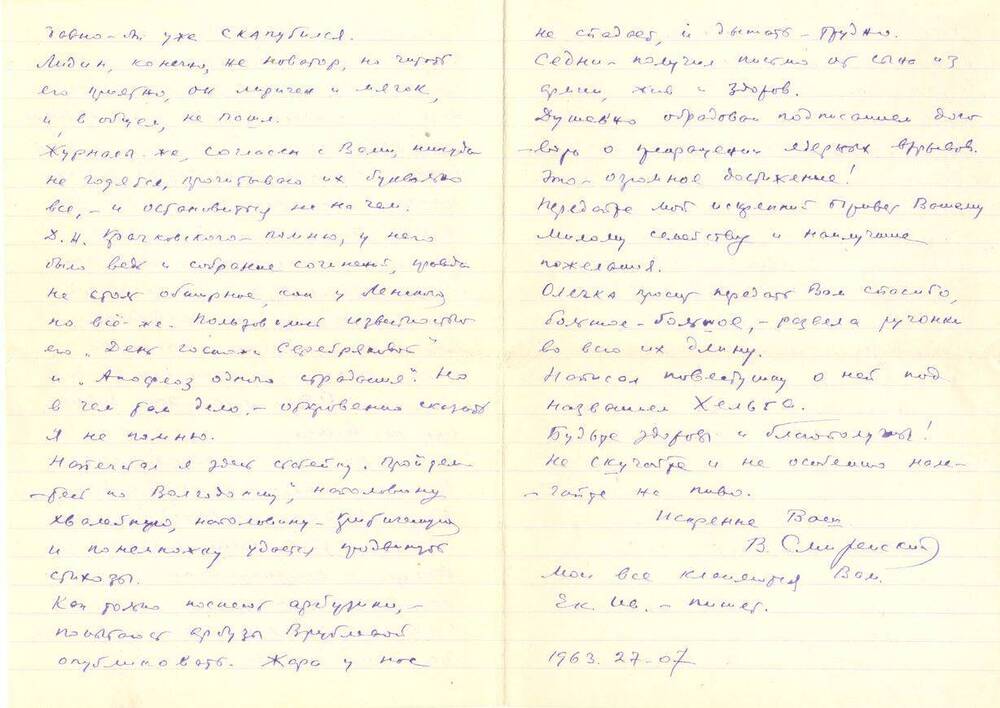 давно-ли уже скапутился.
Лидин, конечно, не новатор, но читать
его приятно, он лиричен и мягок,
и, в общем, не пошл.
Журналы же, согласен с Вами, никуда
не годятся, прочитываю их буквально
все, – и остановиться не на чем.
Д.Н. Крачковского – помню, у него
было ведь и собрание сочинений, правда
не столь обширное, как у Ленского
но всё-же. Пользовались известностью
его „День госпожи Серебряковой"
и „Апофеоз одного страдания". Но
в чем там дело, – откровенно сказать
я не помню.
Напечатал я здесь статейку „Пройдем-
-тесь по Волгодонску", наполовину
хвалебную, наполовину – критическую
и понемножку удается продвинуть
стихозы.
Как только поспеют арбузики, –
попытаюсь арбузы
опубликовать. Жара у нас
не спадает, и дышать – трудно.
Седни – получил письмо от сына из
армии, жив и здоров.
Душевно обрадован подписанием дого
-вора о прекращении ядерных взрывов.
Это – огромное достижение!
Передайте мой искренний привет Вашему
милому семейству и наилучшие
пожелания.
Олечка просит передать Вам спасибо,
большое-большое, – развела ручонки
во всю их длину.
Написал повестушку о ней под
названием Хельга.
Будьте здоровы и благополучны!
Не скучайте и не особенно нале-
-гайте на пиво.
Искренне Ваш
В. Смиренский
Мои все кланяются Вам.
Ек. Ив. – пишет.
1963. 27-07